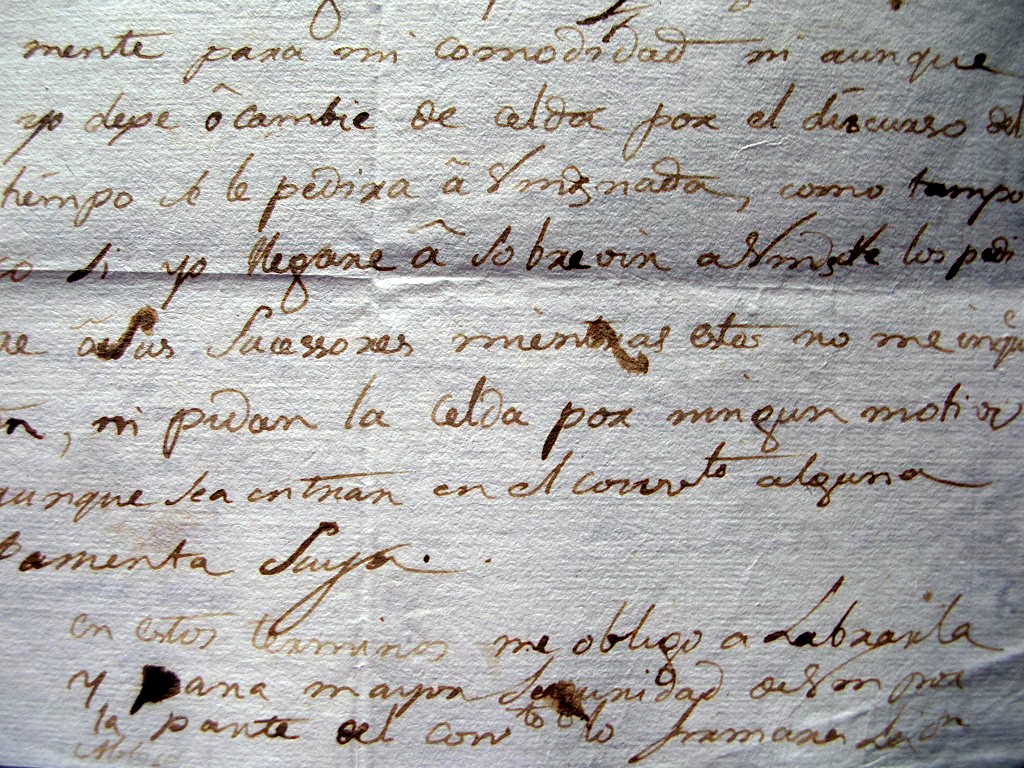 mente para mi comodidad ni aunque
yo dexe ô cambie de celda por el discurso del
tiempo le pedira â Vmd nada, como tampo
co si yo llegare â sobrevivir a Vmd los pedi
re â sus sucessores mientras estos no me inquie
en, ni pidan la celda por ningun motivo
aunque sea entrar en el convto alguna
suya.
en estos terminos me obligo a Labrarla
y para mayor seguridad de Vm por
la parte del convto lo firmara